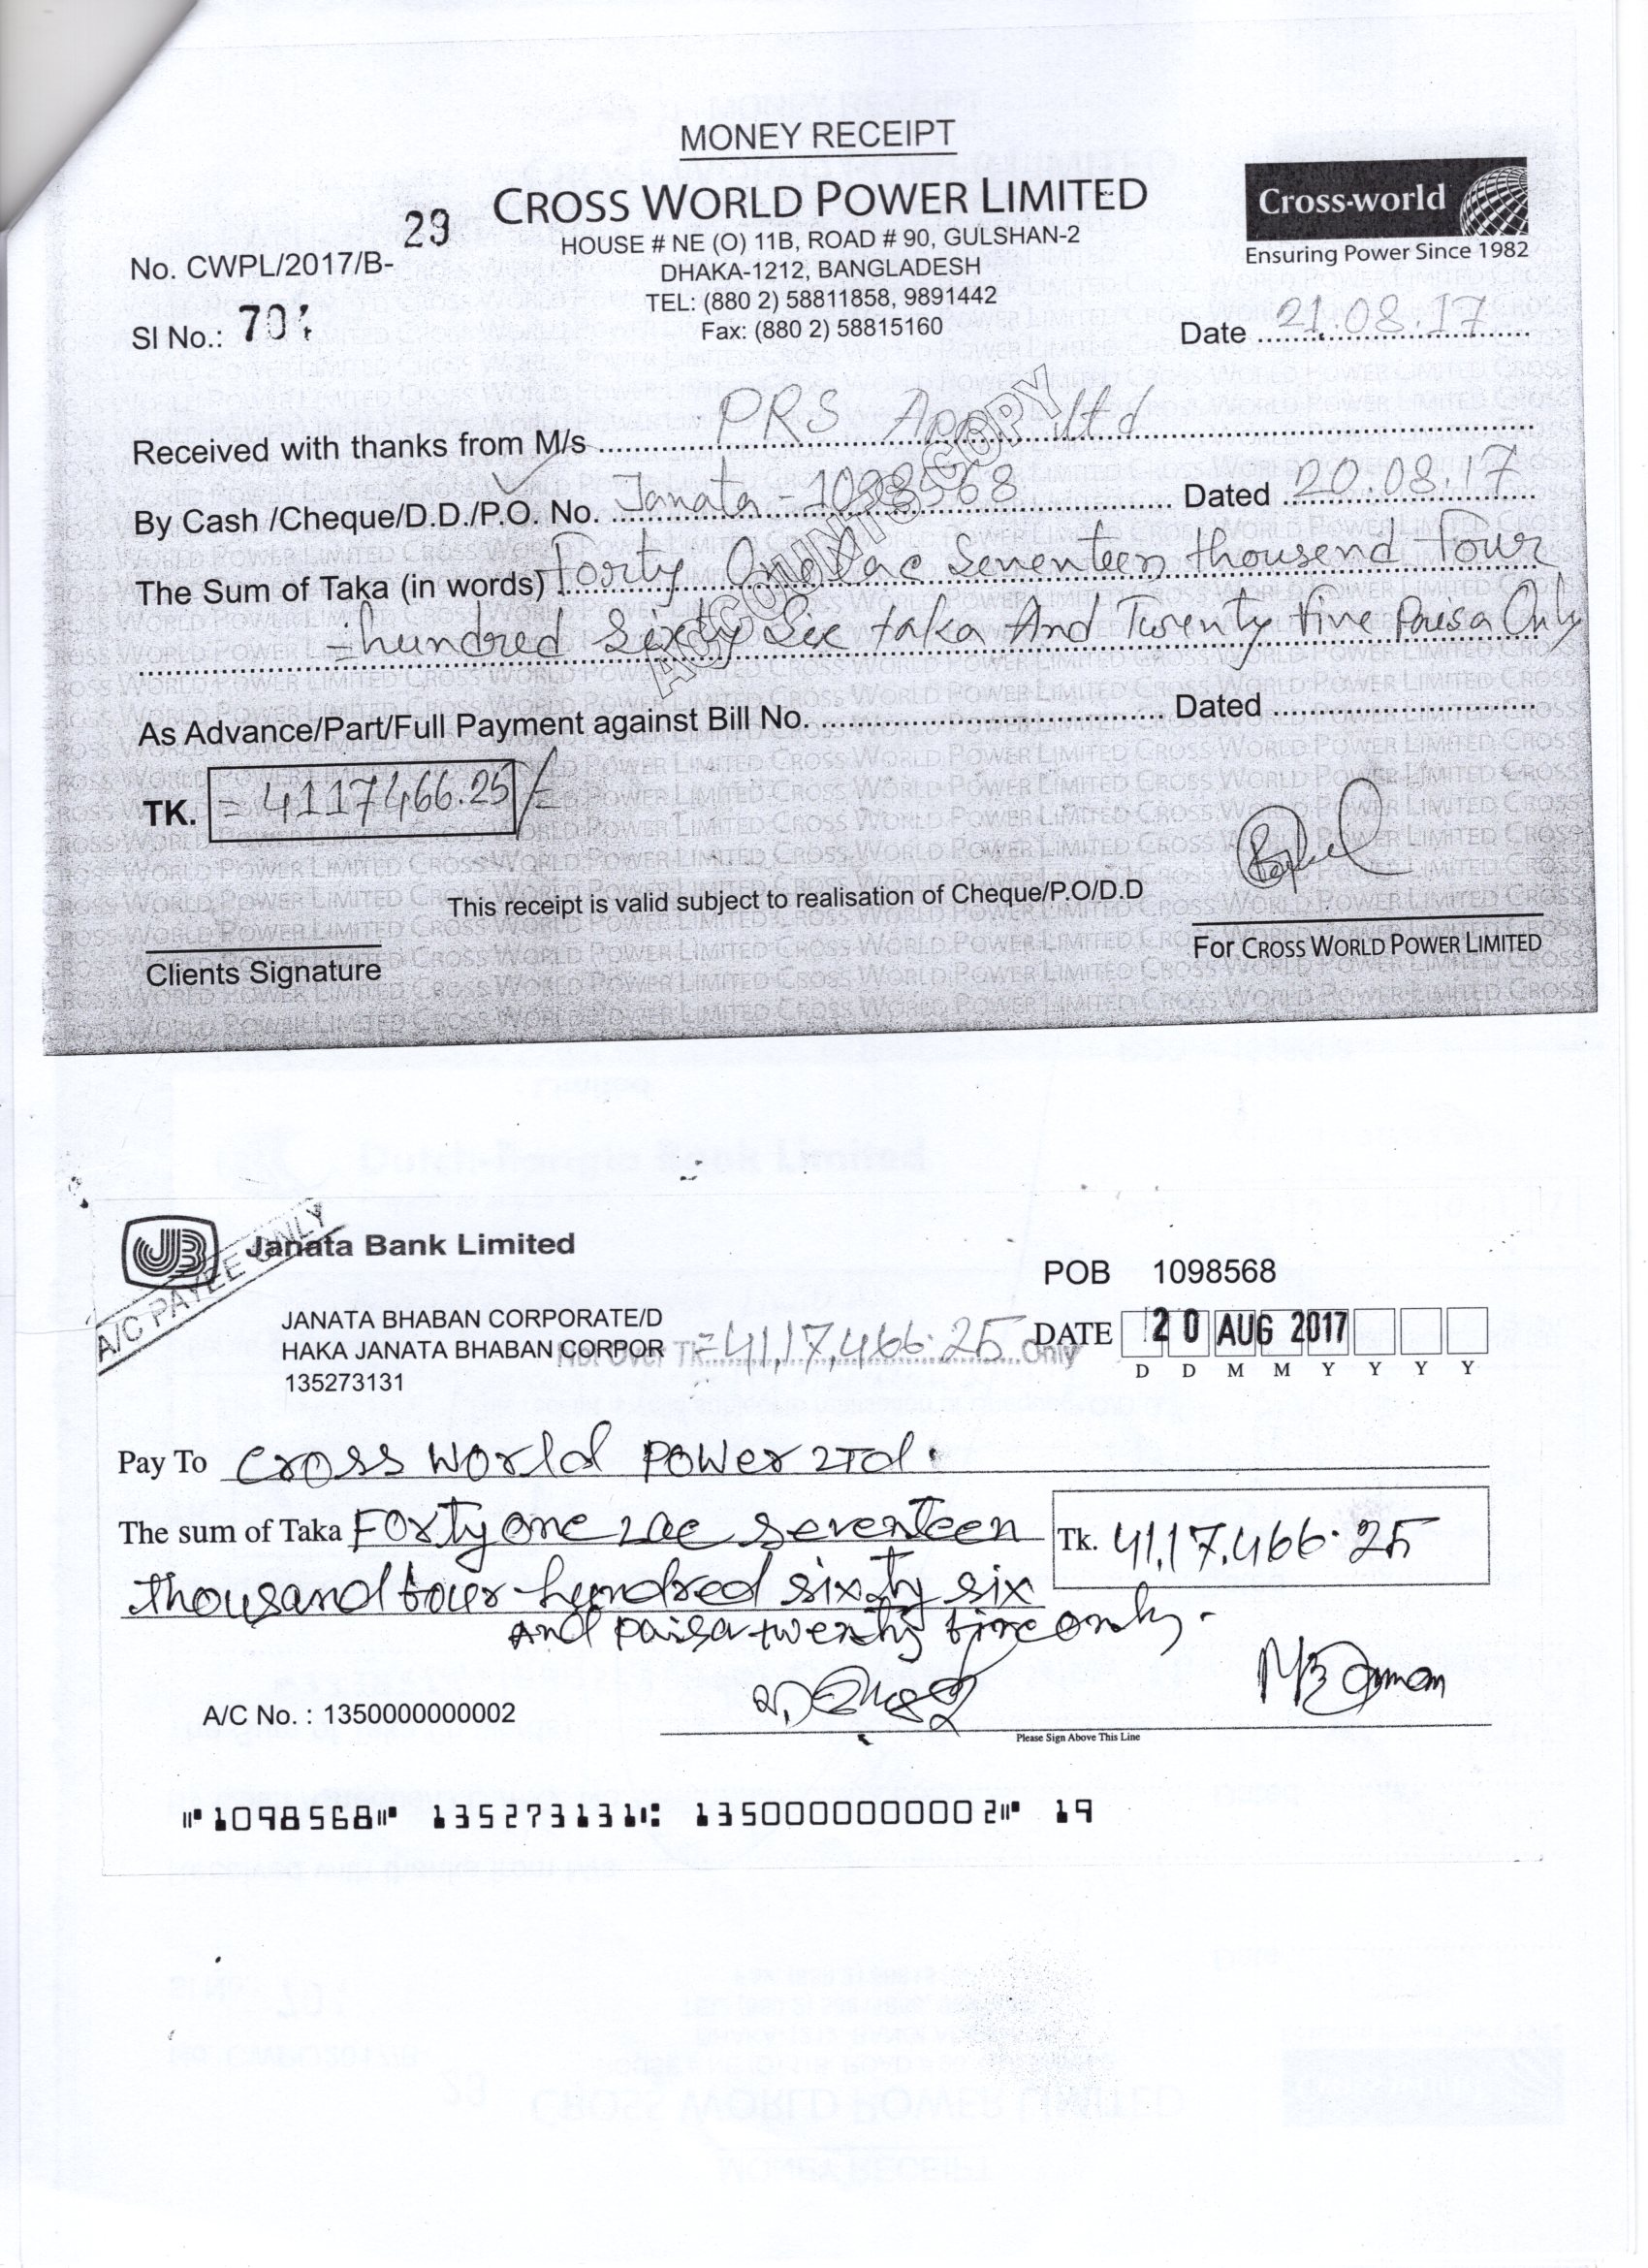 MONEY RECEIPT
CROSS WORLD POWER LIMITED
HOUSE # NE (O) 11B, ROAD # 90, GULSHAN-2
DHAKA-1212, BANGLADESH
TEL: (880 2) 58811858, 9891442
Fax: (880 2) 58815160
Cross-world
Ensuring Power Since 1982
No. CWPL/2017/B- 29
Sl No.: 70
Date 21.08.17
Received with thanks from M/s PRS ltd
ACCOUNTS COPY
By Cash /Cheque/D.D./P.O. No. Janata - 1098568 Dated 20.08.17
The Sum of Taka (in words) Forty One Lac Seventeen thousend Four
=hundred Sixty Six taka And Twenty five Paisa Only
As Advance/Part/Full Payment against Bill No. Dated
TK. = 4117466.25/=
This receipt is valid subject to realisation of Cheque/P.O/D.D
Clients Signature
For CROSS WORLD POWER LIMITED
A/C PAYEE ONLY
Janata Bank Limited
POB 1098568
JANATA BHABAN CORPORATE/D
HAKA JANATA BHABAN CORPOR
135273131
Not Over TK =41,17,466.25 Only
DATE 20 AUG 2017
D D M M Y Y Y Y
Pay To Cross World Power LTD.
The sum of Taka Forty one Lac seventeen
thousand four hundred sixty six
and paisa twenty five only.
Tk. 41,17,466.25
A/C No. : 1350000000002
Please Sign Above This Line
⑈1098568⑈ 135273131⑆ 1350000000002⑈ 19